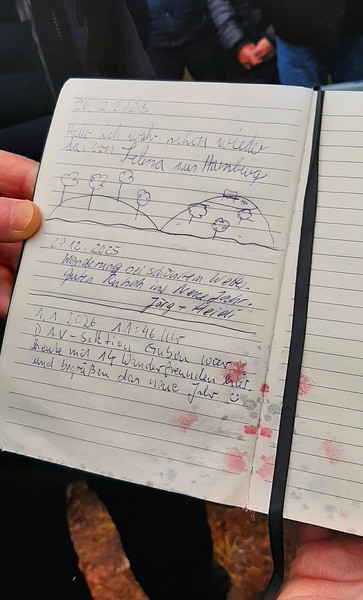 26.12.2025
Hallo ich war schon wieder
da, von Selena aus Hamburg
29.12.2025
Wanderung bei schönstem Wetter.
Guten Rutsch ins Neue Jahr.
Jörg + Heidi
1.1.2026 11:46 Uhr
DAV-Sektion Guben war
heute mit 14 Wanderfreunden hier
und begrüßen das neue Jahr ☺